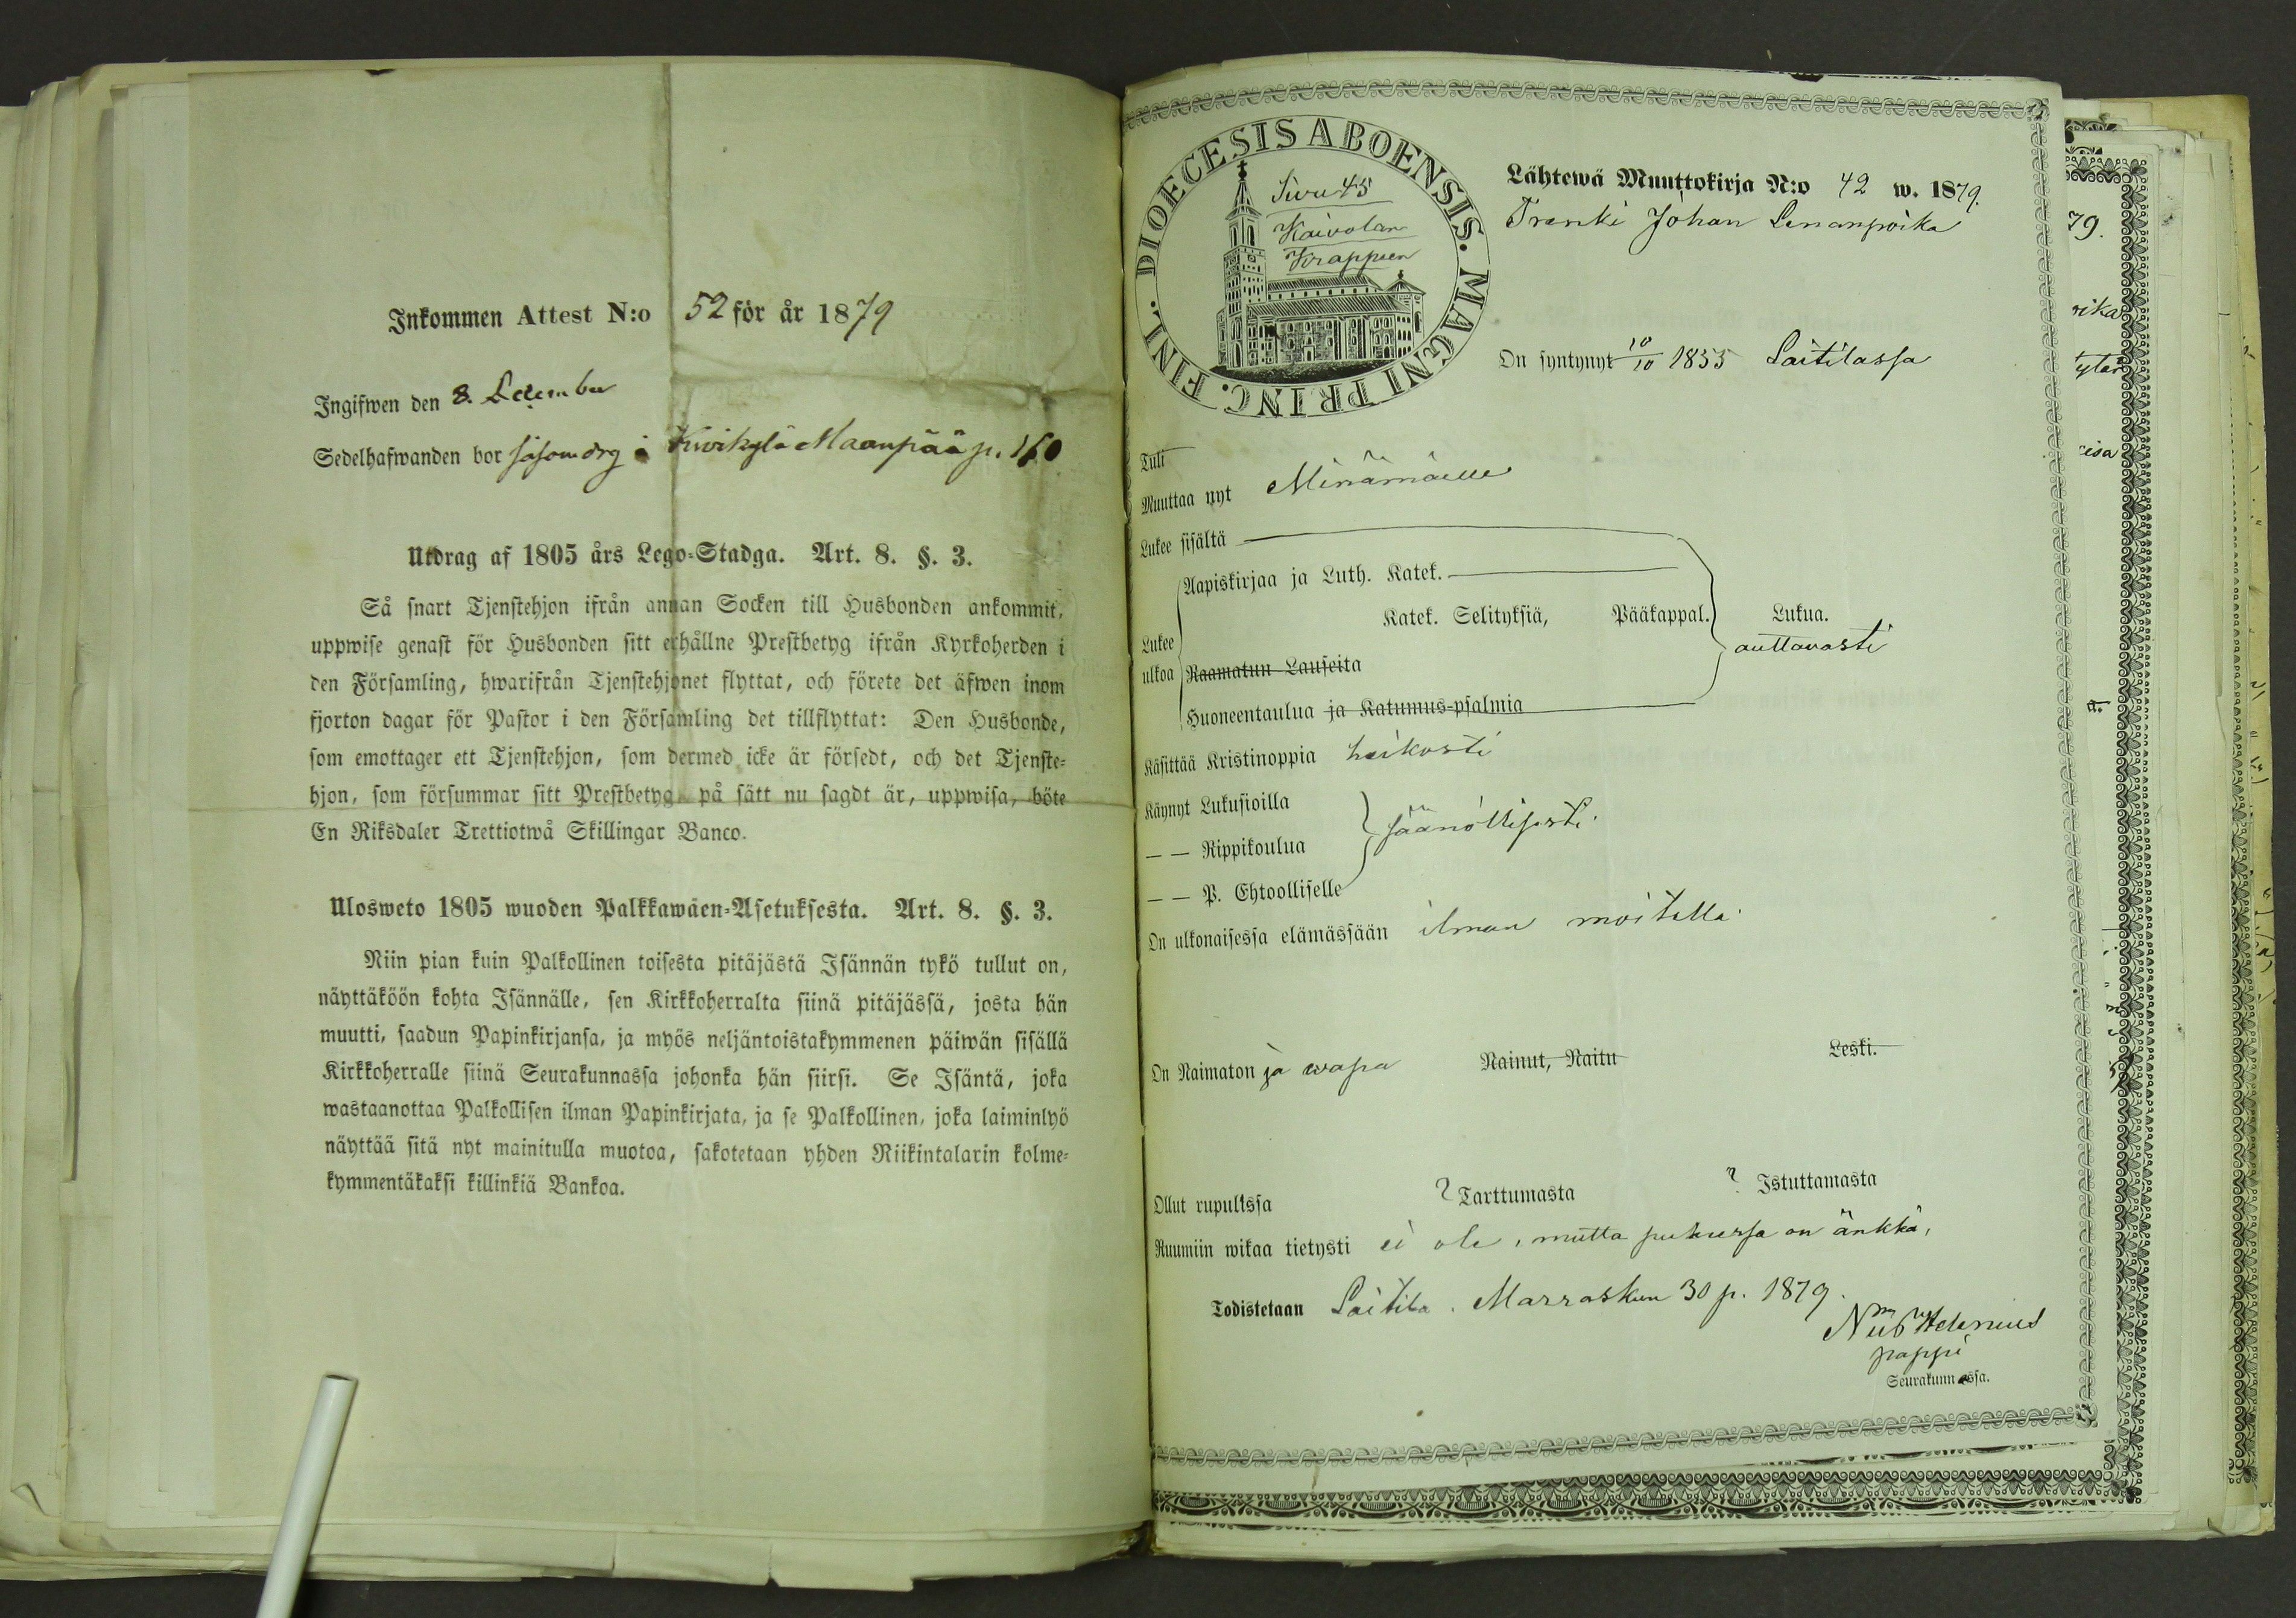 Inkommen Attest N:o 52 för år 1879
Ingifwen den 8. December
Sedelhafwanden bor såsom drg i Kivikylä Maanpää p. 160
Utdrag af 1805 års Lego-Stadga. Art. 8. §. 3.
Så snart Tjenstehjon ifrån annan Socken till Husbonden ankommit,
uppwise genast för Husbonden sitt erhållne Prestbetyg ifrån Kyrkoherden i
den Församling, hwarifrån Tjenstehjonet flyttat, och förete det äfwen inom
fjorton dagar för Pastor i den Församling det tillflyttat: Den Husbonde,
som emottager ett Tjenstehjon, som dermed icke är försedt, och det Tjenste-
hjon, som försummar sitt Prestbetyg på sätt nu sagdt är, uppwisa, böte
En Riksdaler Trettiotwå Skillingar Banco.
Ulosweto 1805 wuoden Palkkawäen-Asetuksesta. Art. 8. §. 3.
Niin pian kuin Palkollinen toisesta pitäjästä Isännän tykö tullut on,
näyttäköön kohta Isännälle, sen Kirkkoherralta siinä pitäjässä, josta hän
muutti, saadun Papinkirjansa, ja myös neljäntoistakymmenen päiwän sisällä
Kirkkoherralle siinä Seurakunnassa johonka hän siirsi. Se Isäntä, joka
wastaanottaa Palkollisen ilman Papinkirjata, ja se Palkollinen, joka laiminlyö
näyttää sitä nyt mainitulla muotoa, sakotetaan yhden Riikintalarin kolme-
kymmentäkaksi killinkiä Bankoa.
DIOECESIS ABOENSIS. MAGNI PRINC. FINL.
Sivu 45
Kaivolan
Krappien
Lähtewä Muuttokirja N:o 42 w. 1879.
Trenki Johan Lenanpoika
On syntynyt 10/10 1855 Laitilassa
Tuli
Muuttaa nyt Mínämäelle
Lukee sisältä
Aapiskirjaa ja Luth. Katek.
Katek. Selityksiä, Pääkappal. Lukua.
Lukee
ulkoa
auttavasti
Raamatun Lauseita
Huoneentaulua ja Katumus-psalmia
Käsittää Kristinoppia heikosti
Käynyt Lukusioilla
— — Rippikoulua
säänöllisesti.
— — P. Ehtoolliselle
On ulkonaisessa elämässään ilman moitetta.
On Naimaton ja wapa Nainut, Naitu Leski.
Ollut rupulissa ? Tarttumasta ? Istuttamasta
Ruumiin wikaa tietysti ei ole, mutta puheessa on änkkä,
Todistetaan Laitila. Marraskuun 30 p. 1879.
Helenius
pappi
Seurakunnassa.
79.